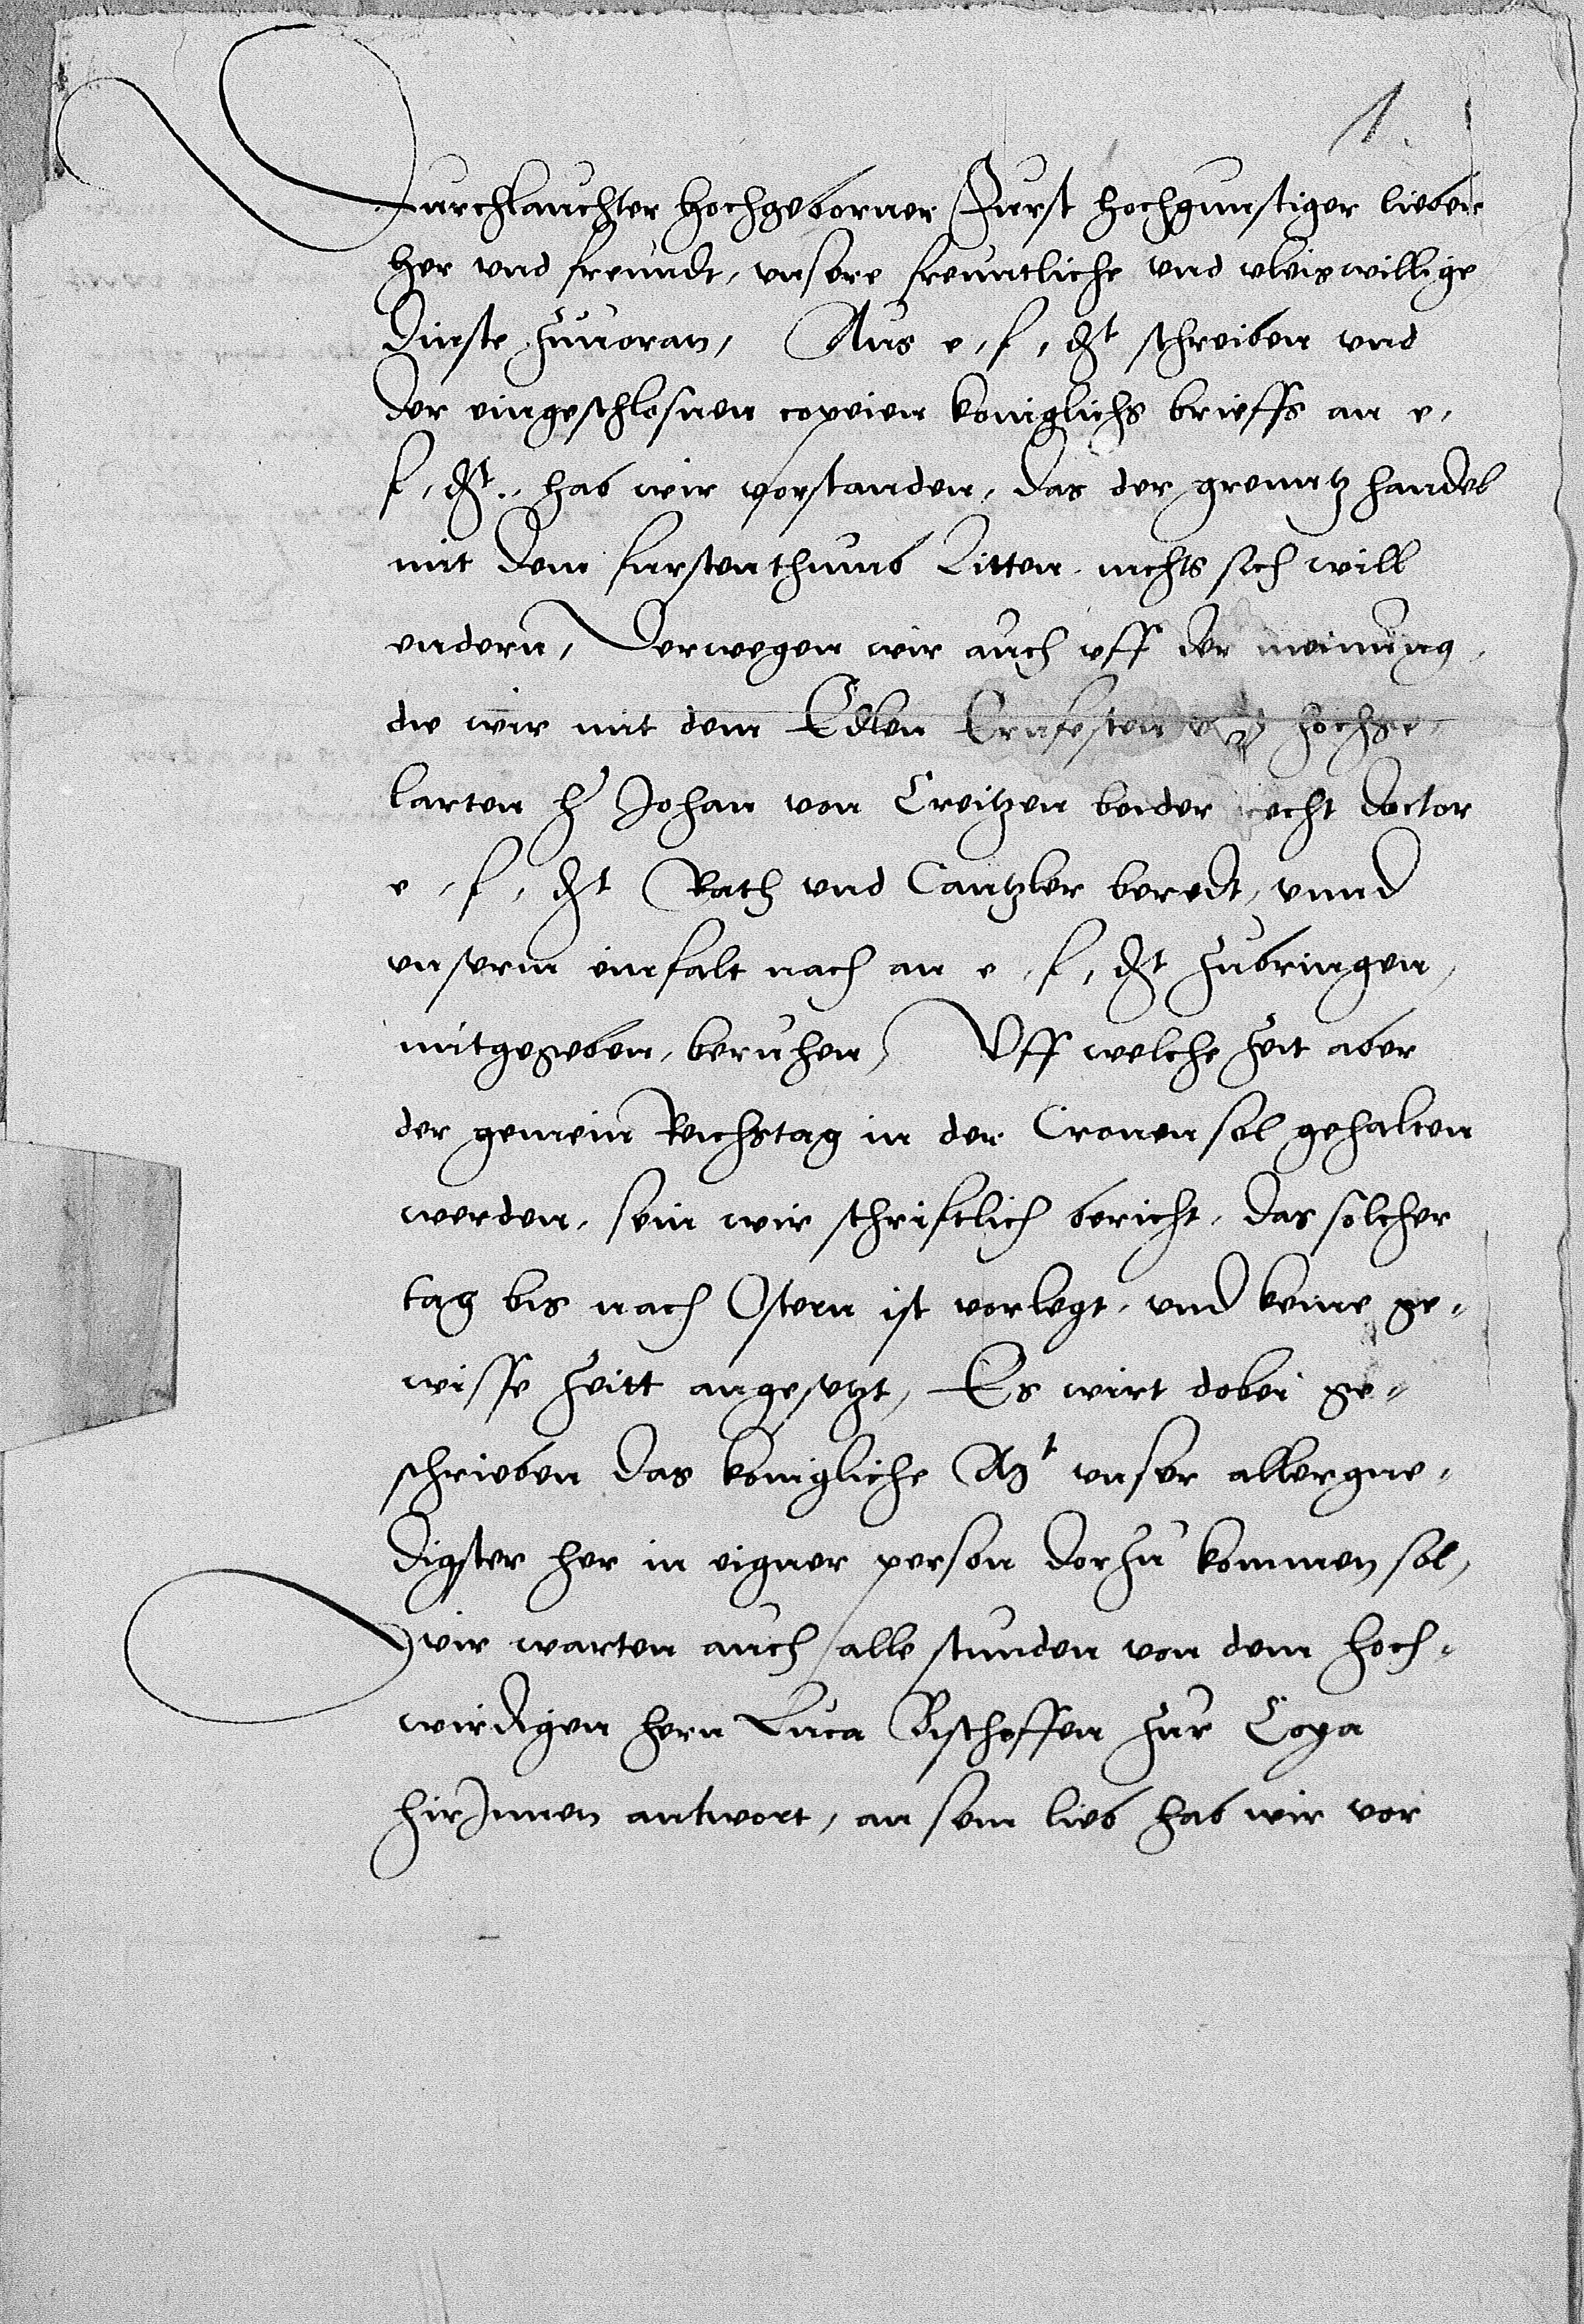 1.
Durchlauchter Hochgeborner Furst hochgunstiger lieber
Her vnd freundt, vnsere freuntliche vnd vleiswillige
Dinste zuuoran, Aus e, f, gt schreiben vnd
der eingeschlosnen copeien koniglichs brieffs an e,
f, gt., hab wir vorstanden, das der grenntz handel
mit dem furstenthumb Litten nichts sich will
endern, Derwegen wir auch vff der meinung,
die wir mit dem Edlen Ernfesten vnd hochge-
larten h Johan von Creitzen beider recht doctor
e, f, gt Rath vnd Cantzler beredt, vnnd
vnserm einfalt nach an e, f, gt zubringen,
mitgegeben, beruhen, Vff welche Zeit aber
der gemein Reichstag in der Cronen sol gehalten
werden, sein wir schriftlich bericht, das solcher
tag bis nach Ostern ist vorlegt, vnd keine ge-
wisse Zeitt angesetzt, Es wirt dobei ge-
schrieben das konigliche Mt vnser allergne-
digster her in eigner person dorzu kommen sol,
wir warten auch alle stunden von dem hoch-
wirdigen hern Luca Bischoffen zur Coya
hirJnnen antwort, an sein lieb hab wir vor